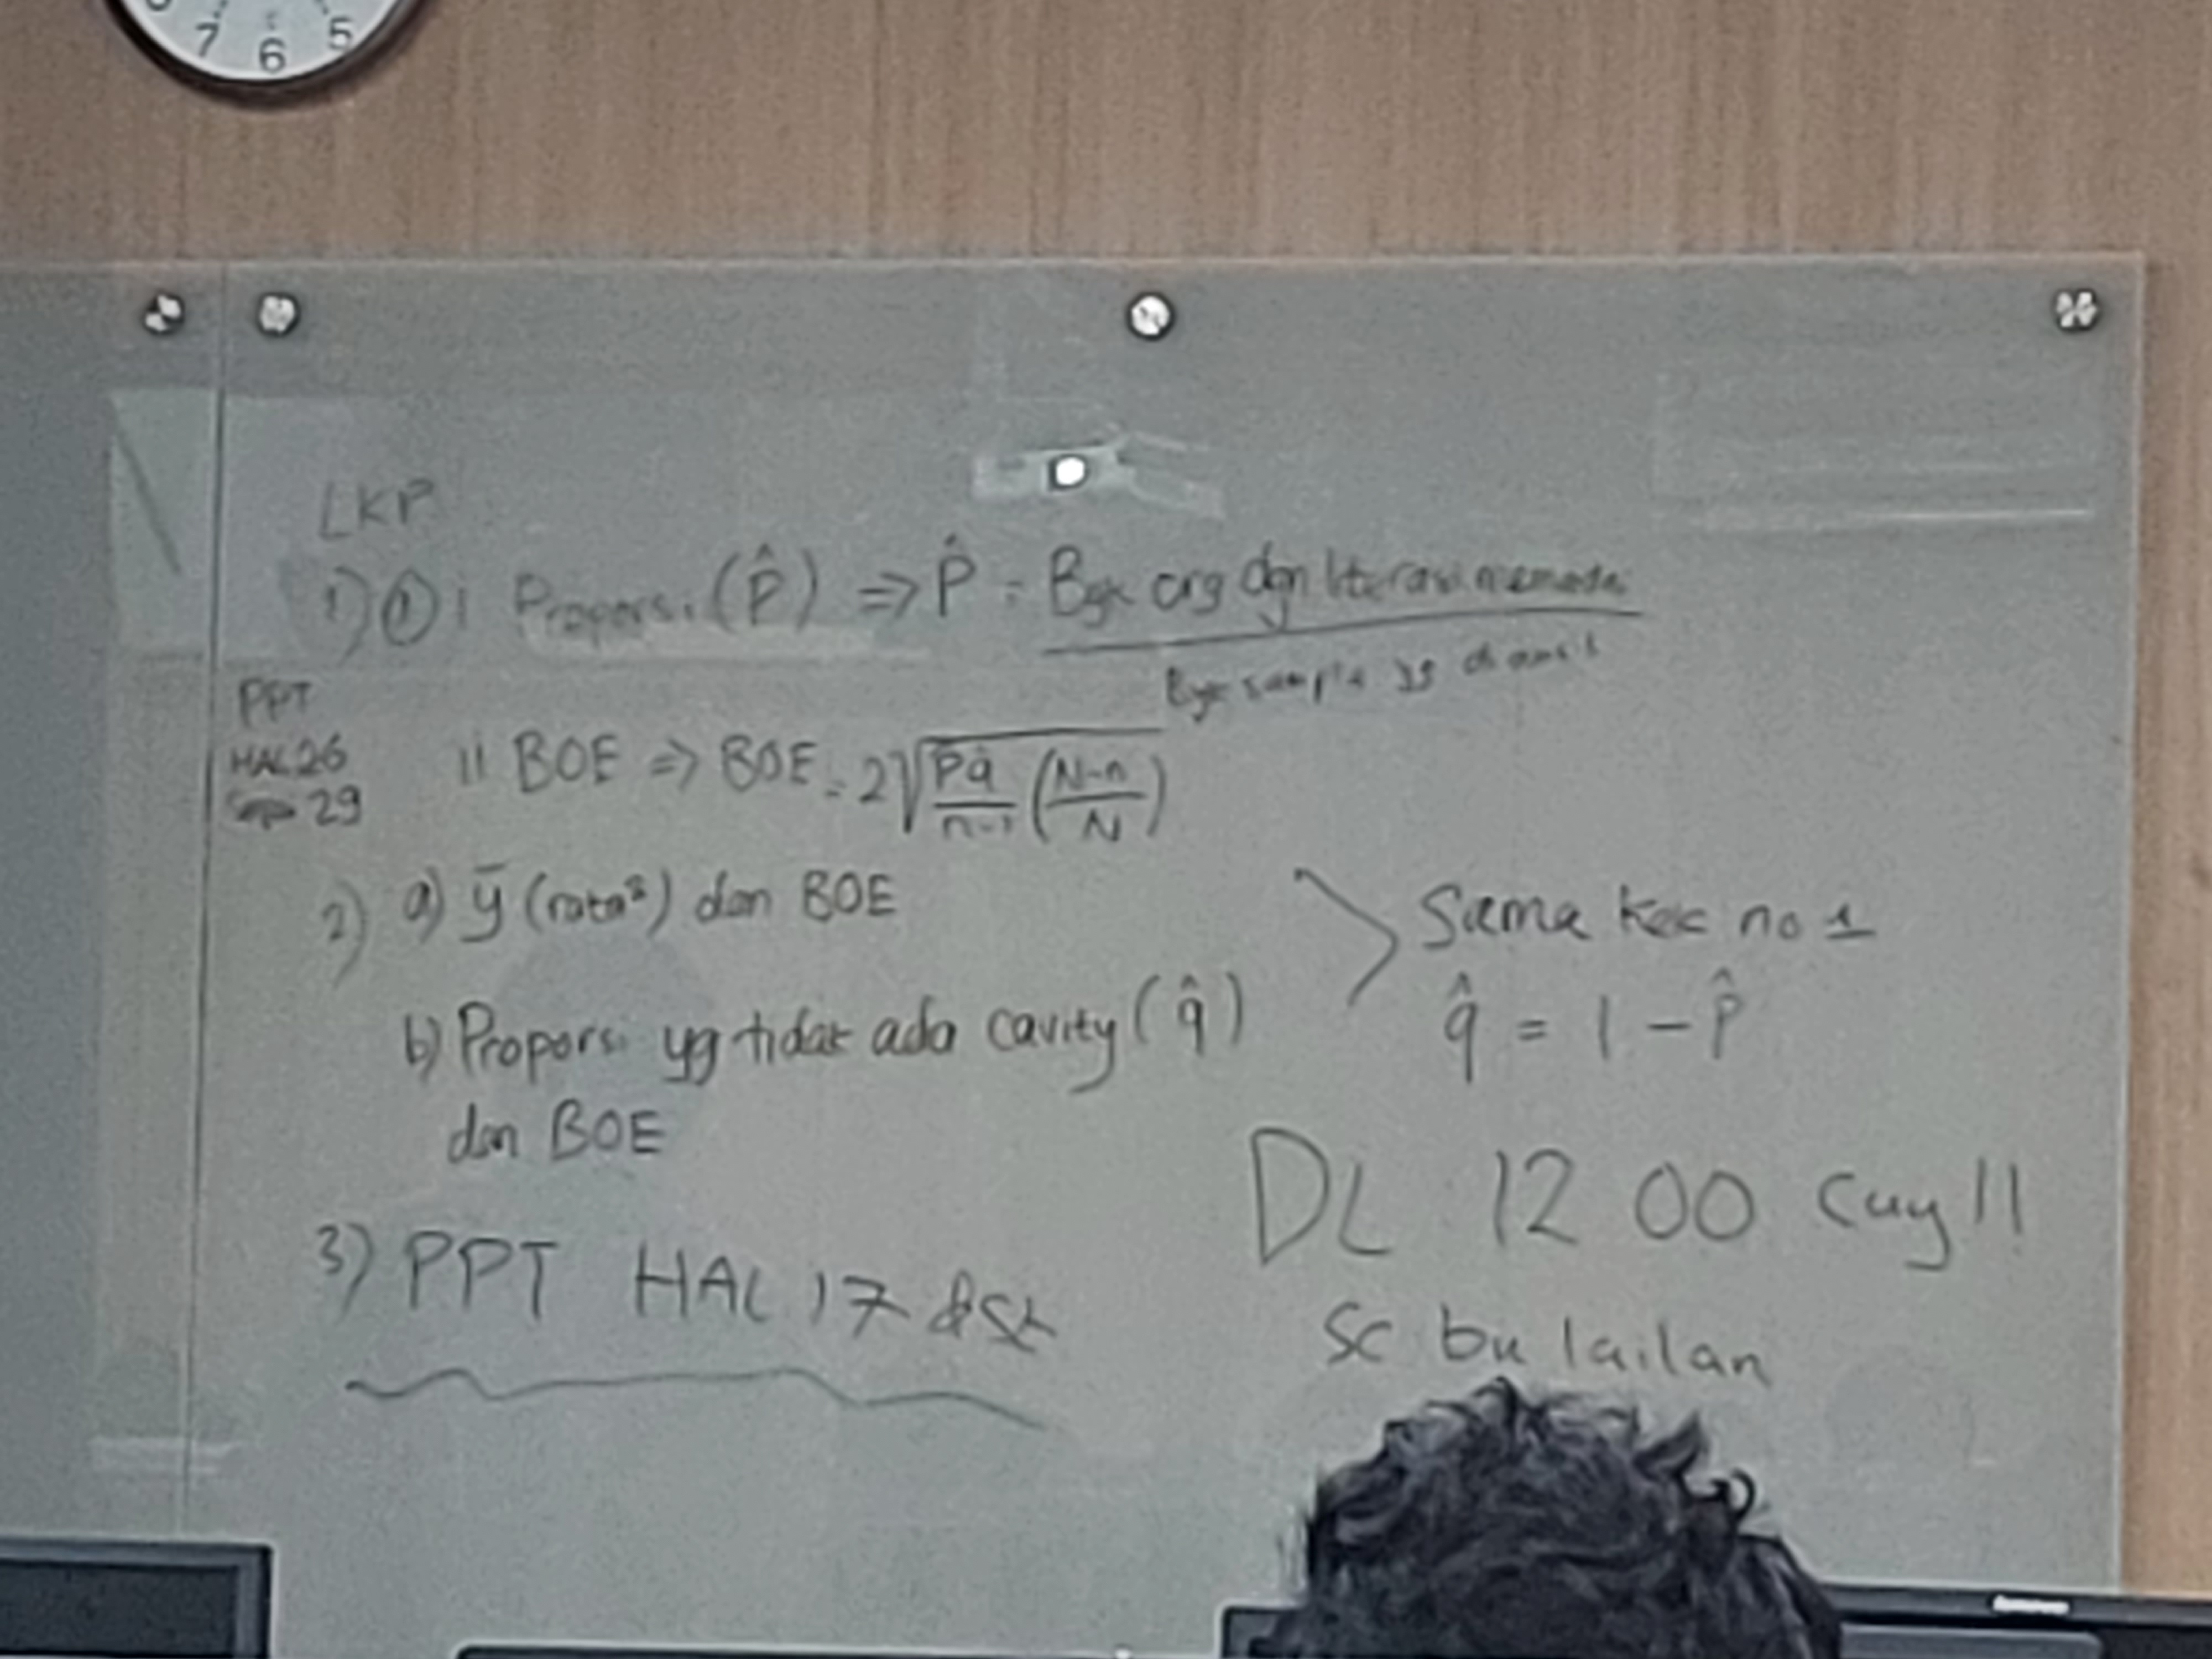 7 6 5
LKP
1) ① i Proporsi (p̂) => p̂ = Byk org dgn literasi memadai
Byk sample yg diambil
PPT
HAL 26
29
ii BOE => BOE = 2√(p̂q̂/n-1 (N-n/N))
2) a) ȳ (rata²) dan BOE
b) Proporsi yg tidak ada cavity (q̂)
dan BOE
> Sama kek no 1
q̂ = 1 - p̂
3) PPT HAL 17 dst
DL 12 00 cuy!!
SC bu lailan